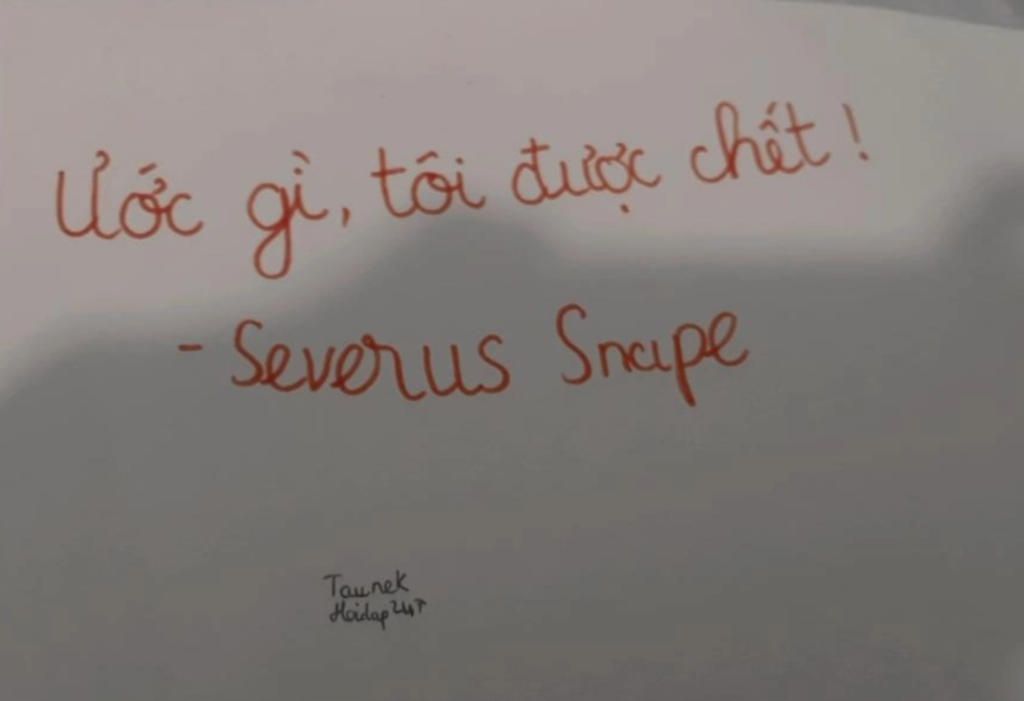 Ước gì, tôi được chết!
- Severus Snape
Taunek
Hoidap247